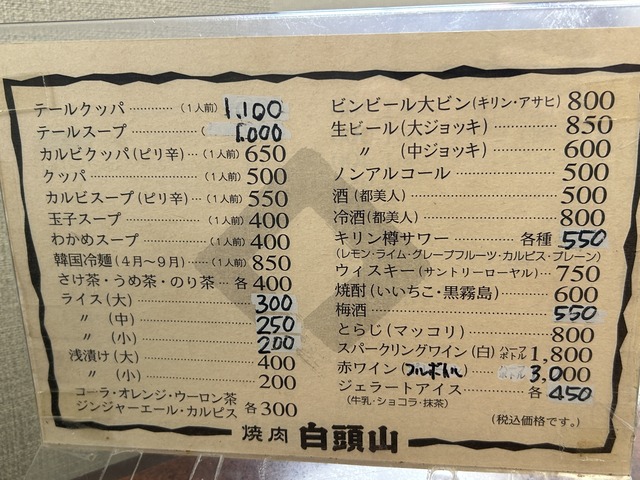 テールクッパ………(1人前)1,100
テールスープ………( 1,000
カルビクッパ(ピリ辛)…(1人前)650
クッパ………(1人前)500
カルビスープ(ピリ辛)…(1人前)550
玉子スープ………(1人前)400
わかめスープ………(1人前)400
韓国冷麺(4月〜9月)……(1人前)850
さけ茶・うめ茶・のり茶…各400
ライス(大)………300
〃 (中)………250
〃 (小)………200
浅漬け(大)………400
〃 (小)………200
コーラ・オレンジ・ウーロン茶
ジンジャーエール・カルピス 各300
ビンビール大ビン(キリン・アサヒ)800
生ビール(大ジョッキ)………850
〃 (中ジョッキ)………600
ノンアルコール………500
酒(都美人)………500
冷酒(都美人)………800
キリン樽サワー………各種 550
(レモン・ライム・グレープフルーツ・カルピス・プレーン)
ウィスキー(サントリーローヤル)…750
焼酎(いいちこ・黒霧島)………600
梅酒………550
とらじ(マッコリ)………800
スパークリングワイン(白)ハーフボトル1,800
赤ワイン(フルボトル)……3,000
ジェラートアイス………各 450
(牛乳・ショコラ・抹茶)
(税込価格です。)
焼肉 白頭山